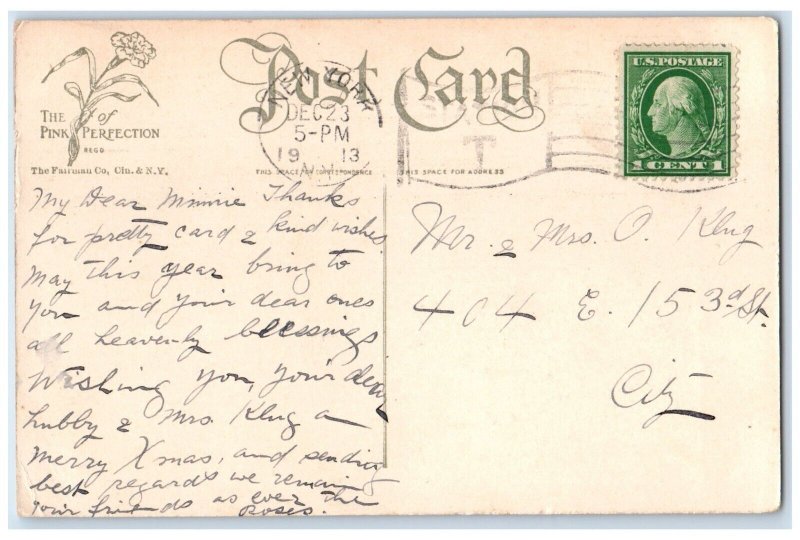 Post Card
THE of
PINK PERFECTION
REGD
The Fairman Co, Cin. & N.Y.
NEW YORK
DEC 23
5-PM
1913
N.Y.
T
U.S. POSTAGE
1 CENT 1
THIS SPACE FOR CORRESPONDENCE
THIS SPACE FOR ADDRESS
My Dear Minnie Thanks
for pretty card & kind wishes.
May this year bring to
you and your dear ones
all heavenly blessings
Wishing you, your dear
hubby & Mrs. Klug a
merry Xmas, and sending
best regards we remain
your friends as ever the
Roses.
Mr. & Mrs. O. Klug
404 E. 153d St.
City